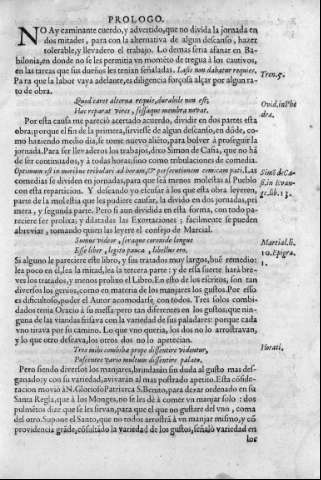 PROLOGO.
NO Ay caminante cuerdo, y advertido, que no divida la jornada en
dos mitades, para con la alternativa de algun descanso, hazer
tolerable, y llevadero el trabajo. Lo demas seria afanar en Ba-
bilonia, en donde no se les permitia vn momẽto de tregua à los cautivos,
en las tareas que sus dueños les tenian señaladas. Lassis non dabatur requies.
Para que la labor vaya adelante, es diligencia forçosa alçar por algun ra-
to de obra.
Tren. 5.
Quod caret alterna requie, durabile non est;
Hac reparat vires, fessaque membra novat.
Ovid. in Phe
dra.
Por esta causa me pareciò acertado acuerdo, dividir en dos partes esta
obra; porque el fin de la primera, sirviesse de algun descanso, en dõde, co-
mo haziendo medio dia, se tome nuevo aliẽto, para bolver à proseguir la
jornada. Para ser llevaderos los trabajos, dixo Simon de Casia, que no hã
de ser continuados, y à todas horas; sino como tribulaciones de comedia.
Optimum est in moribus tribulari ad horam, & persecutionem comicam pati. Las
comedias se dividen en jornadas, para que sea menos molestas al Pueblo
con esta reparticion. Y deseando yo escusar à los que esta obra leyeren,
parte de la molestia que les pudiere causar, la divido en dos jornadas, pri
mera, y segunda parte. Pero si aun dividida en esta forma, con todo pa-
reciere ser prolixa, y dilatadas las Exortaciones; facilmente se pueden
abreviar, tomando quien las leyere el consejo de Marcial.
Simõ de Ca-
sia, in Evan-
ge. lib. 13.
Si nimius videor, seraque coronide longus
Esse liber, legito pauca, libellus ero.
Martial. li.
10. Epigra.
1.
Si alguno le pareciere este libro, y sus tratados muy largos, buẽ remedio:
lea poco en èl, lea la mitad, lea la tercera parte: y de essa suerte harà bre-
ves los tratados, y menos prolixo el Libro. En esto de los escritos, son tan
diversos los genios, como en materia de los manjares los gustos. Por esso
es dificultoso, poder el Autor acomodarse con todos. Tres solos combi-
dados tenia Oracio à su messa: pero tan diferentes en los gustos, que nin-
guna de las viandas frisava con la variedad de sus paladares: porque cada
vno tirava por su camino. Lo que vno queria, los dos no lo arrostravan,
y lo que otro deseava, los otros dos no lo apetecian.
Tres mihi conviva prope dissentire videntur,
Poscentes vario multum diversa palato.
Horati.
Pero siendo diversos los manjares, brindaràn sin duda al gusto mas des-
ganado; y con su variedad, avivaràn al mas postrado apetito. Esta cõside-
racion moviò à N. Glorioso Patriarca S. Benito, para dexar ordenado en su
Santa Regla, que à los Monges, no se les dè à comer vn manjar solo: dos
pulmẽtos dize que se les sirvan, para que el que no gustare del vno, coma
del otro. Supone el Santo, que no todos arrostrã à vn manjar mismo, y cõ
providencia grãde, cõsultãdo la variedad de los gustos, señalò variedad en
los